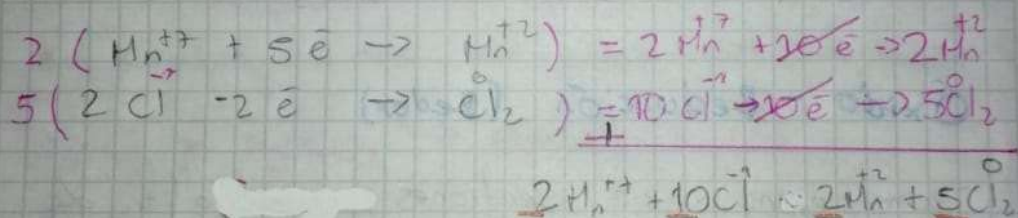 2 (Mn⁺⁷ + 5ē -> Mn⁺²) = 2Mn⁺⁷ + 10ē -> 2Mn⁺²
5 (2Cl⁻¹ - 2ē -> Cl₂⁰) = 10Cl⁻¹ - 10ē -> 5Cl₂⁰
+
2Mn⁺⁷ + 10Cl⁻¹ 2Mn⁺² + 5Cl₂⁰